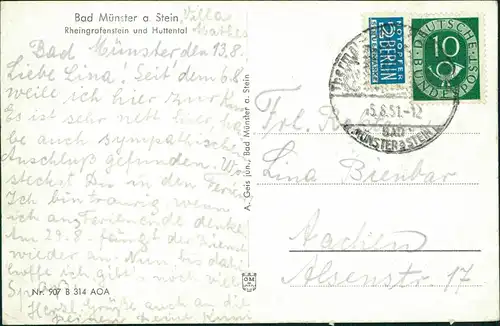 Bad Münster a. Stein
Rheingrafenstein und Huttental
Villa
Mathes
Bad Münster den 13.8.
Liebe Lina. Seit dem 6.8.
weile ich hier zur Kur.
Es ist sehr nett hier, ha-
be auch sympathischen
Anschluß gefunden. Wo
steckst Du in den Ferien
Ich bin traurig wenn
ich ans Ferienende denke
Am 29.8. fängt der Dienst
wieder an. Nun bis dahin
hoffe ich gibt's noch viel
Spaß.
Herzl. Grüße auch an die
Deinen Deine
Nr. 907 B 314 AOA
A. Geis jun., Bad Münster a. Stein
NOTOPFER
2 BERLIN
STEUERMARKE
DEUTSCHE
BUNDESPOST
10
15.8.51.-12
BAD
MÜNSTER a STEIN
Frl.
Lina Bienbar
Aachen
Alsenstr. 17